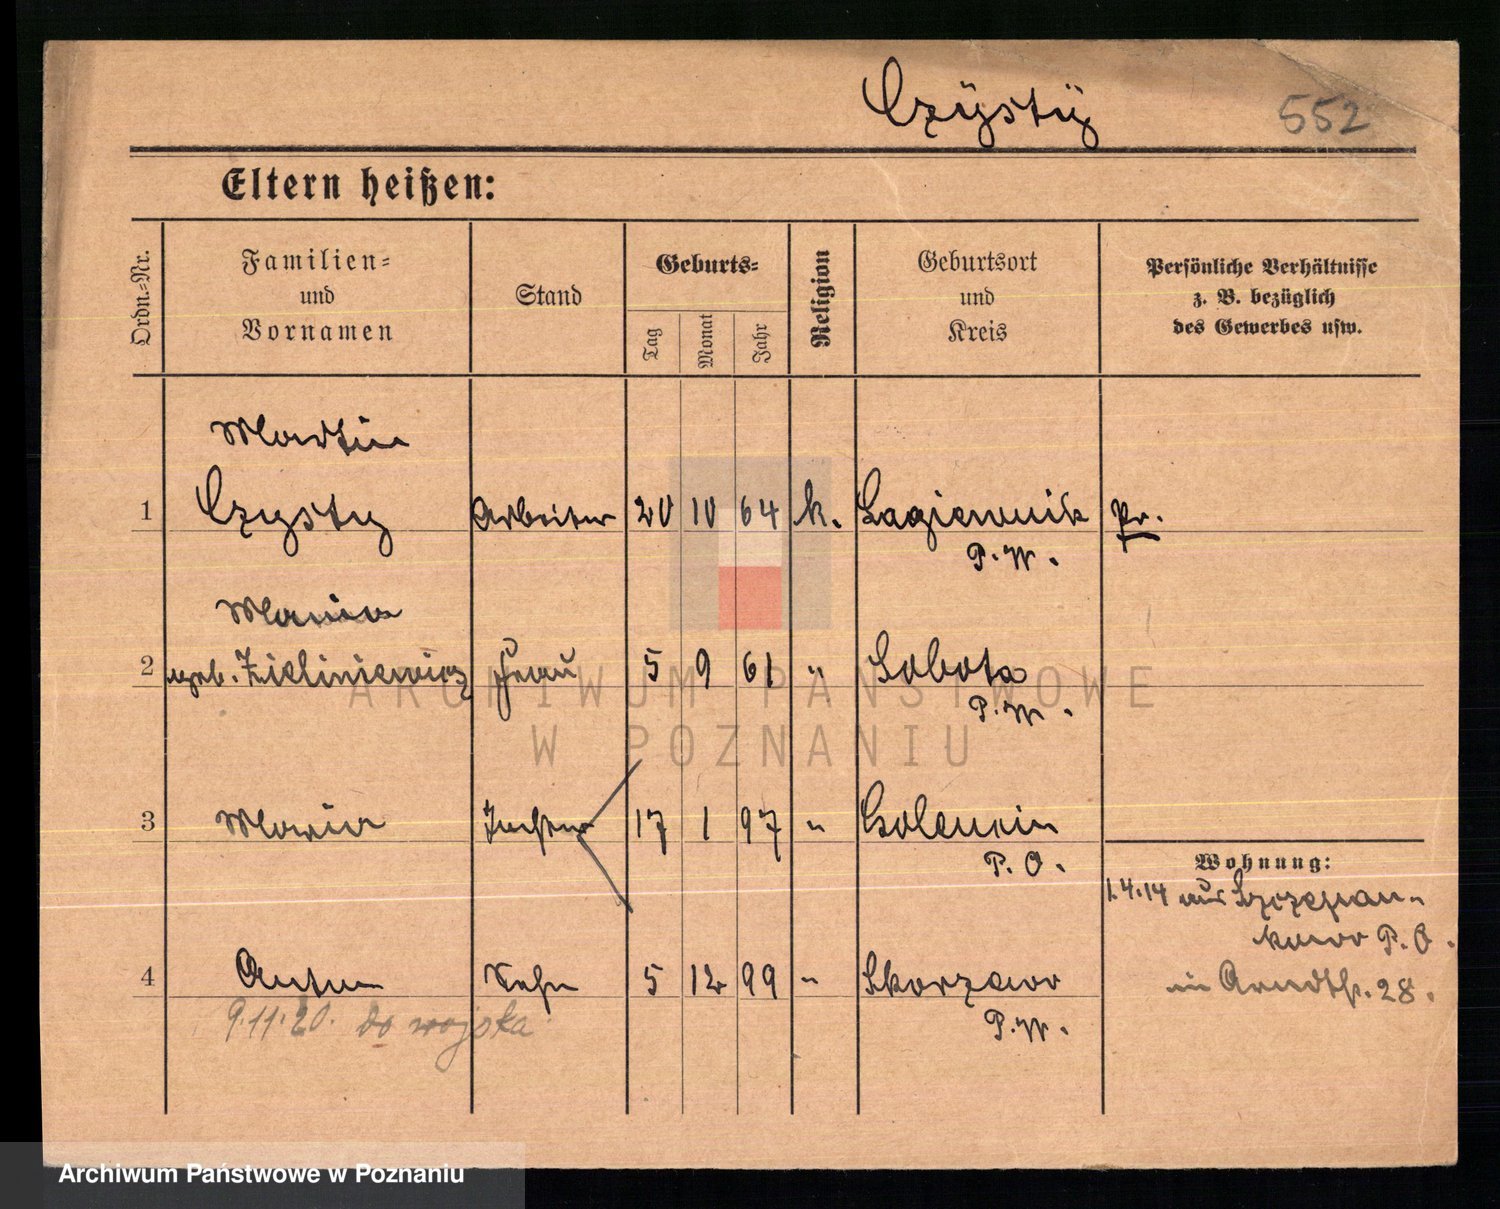 Czÿstÿ 552
Eltern heißen:
Ordn.-Nr.
Familien-
und
Vornamen
Stand
Geburts-
Tag Monat Jahr
Religion
Geburtsort
und
Kreis
Persönliche Verhältnisse
z. B. bezüglich
des Gewerbes usw.
Martin
1 Czysty Arbeiter 20 10 64 k. Lagiewnik Pr.
P.W.
Maria
2 geb. Zieliniewicz Frau 5 9 61 " Sobota
P.W.
3 Maria 17 1 97 " Golencin
P.O.
Wohnung:
1.4.14 aus Szczepan-
kowo P.O.
4 Anton Sohn 5 12 99 " Skorzewo
in Arndtstr. 28.
P.W.
9.11.20. do wojska
ARCHIWUM PAŃSTWOWE
W POZNANIU
Archiwum Państwowe w Poznaniu